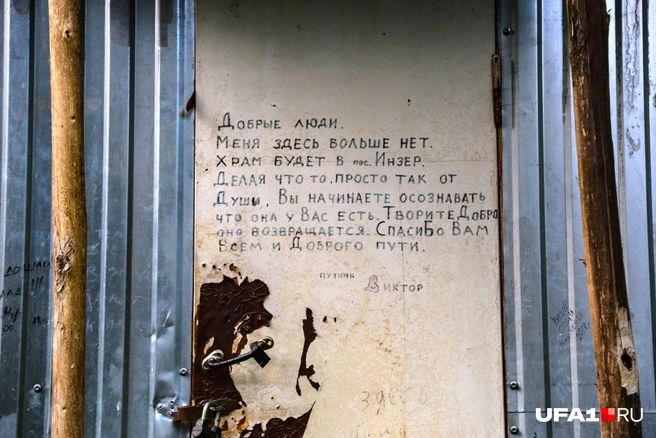 Добрые люди.
Меня здесь больше нет.
Храм будет в пос. Инзер.
Делая что то, просто так от
Души, Вы начинаете осознавать
что она у Вас есть. Творите Добро
оно возвращается. Спасибо Вам
Всем и Доброго пути.
путник
Виктор
здесь
UFA1.RU